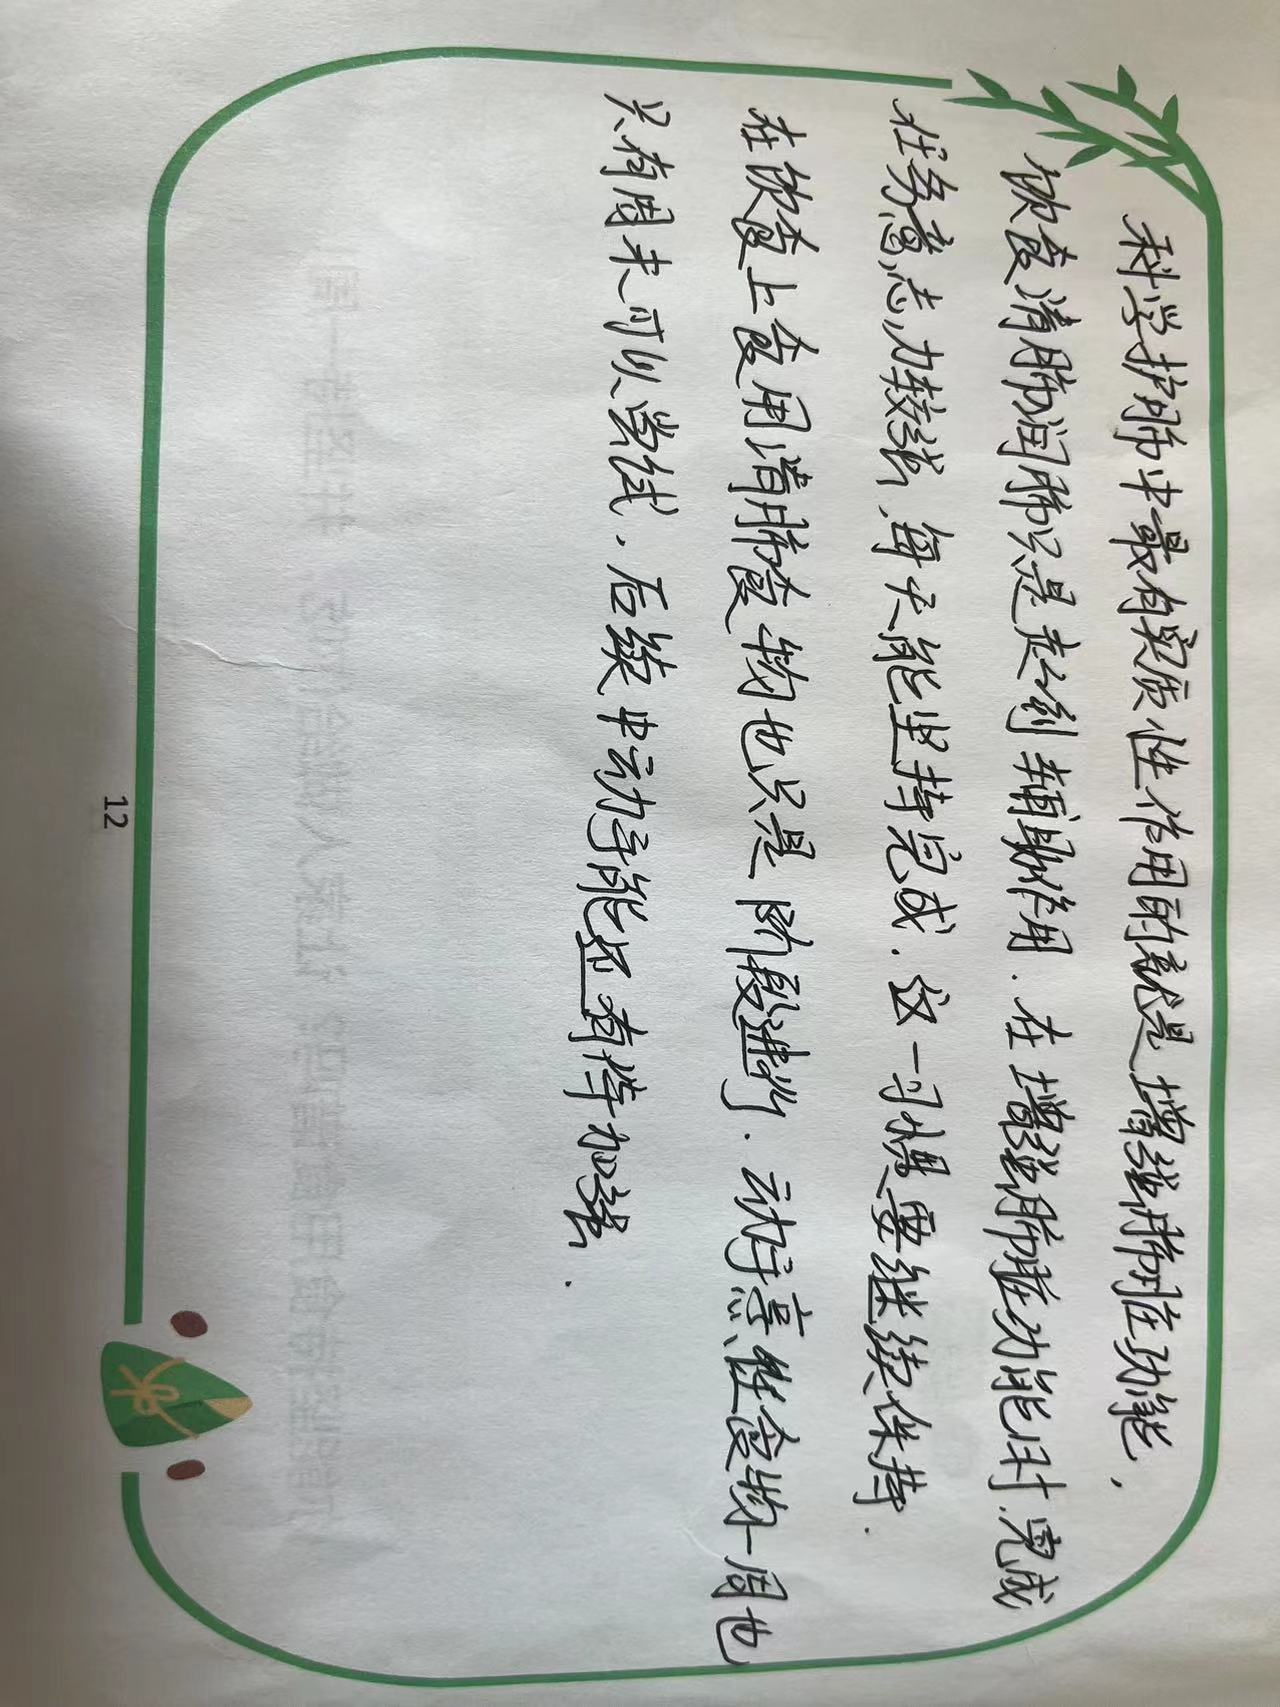 科学护肺中最有实质性作用的就是增强肺脏功能,
饮食清肺润肺只是起到辅助作用.在增强肺脏功能时.完成
任务意志力较强,每天能坚持完成.这一习惯要继续保持.
在饮食上食用清肺食物也只是阶段进行.动手烹饪食物一周也
只有周末可以尝试,后续中动手能还有待加强.
12